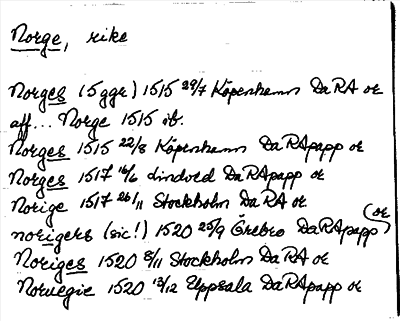 Norge, rike
Norges (5 ggr) 1515 29/7 Köpenhamn DaRA or
aff... Norge 1515 ib.
Norges 1515 22/8 Köpenhamn DaRApapp or
Norges 1517 16/6 Lindved DaRApapp or
Norige 1517 26/11 Stockholm DaRA or
norigers (sic!) 1520 25/9 Örebro DaRApapp (or
Noriges 1520 8/11 Stockholm DaRA or
Noruegie 1520 13/12 Uppsala DaRApapp or